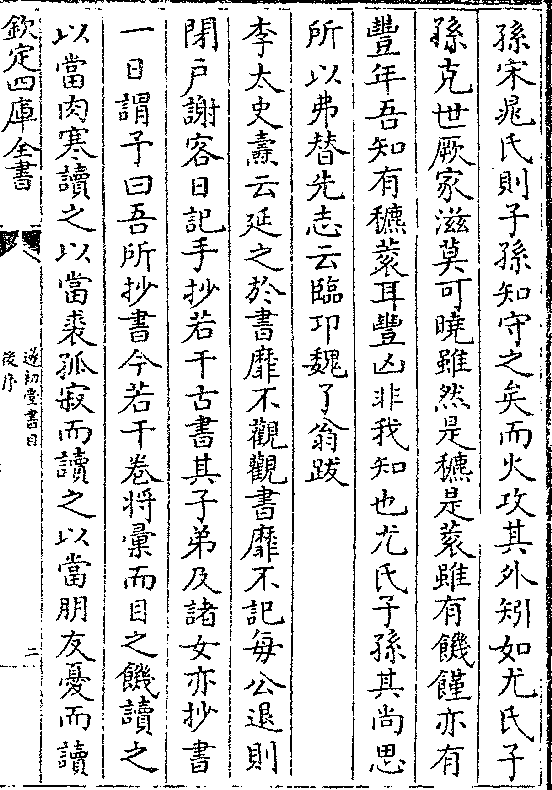 孫宋鼂氏則子孫知守之矣而火攻其外矧如尤氏子
孫克世厥家滋莫可曉雖然是穮是蓘雖有饑饉亦有
豐年吾知有穮蓘耳豐凶非我知也尤氏子孫其尚思
所以弗替先志云臨卭魏了翁跋
李太史燾云延之於書靡不觀觀書靡不記每公退則
閉戶謝客日記手抄若干古書其子弟及諸女亦抄書
一日謂予曰吾所抄書今若干卷將彚而目之饑讀之
以當肉寒讀之以當裘孤寂而讀之以當朋友憂而讀
欽定四庫全書
遂初堂書目
後序
二